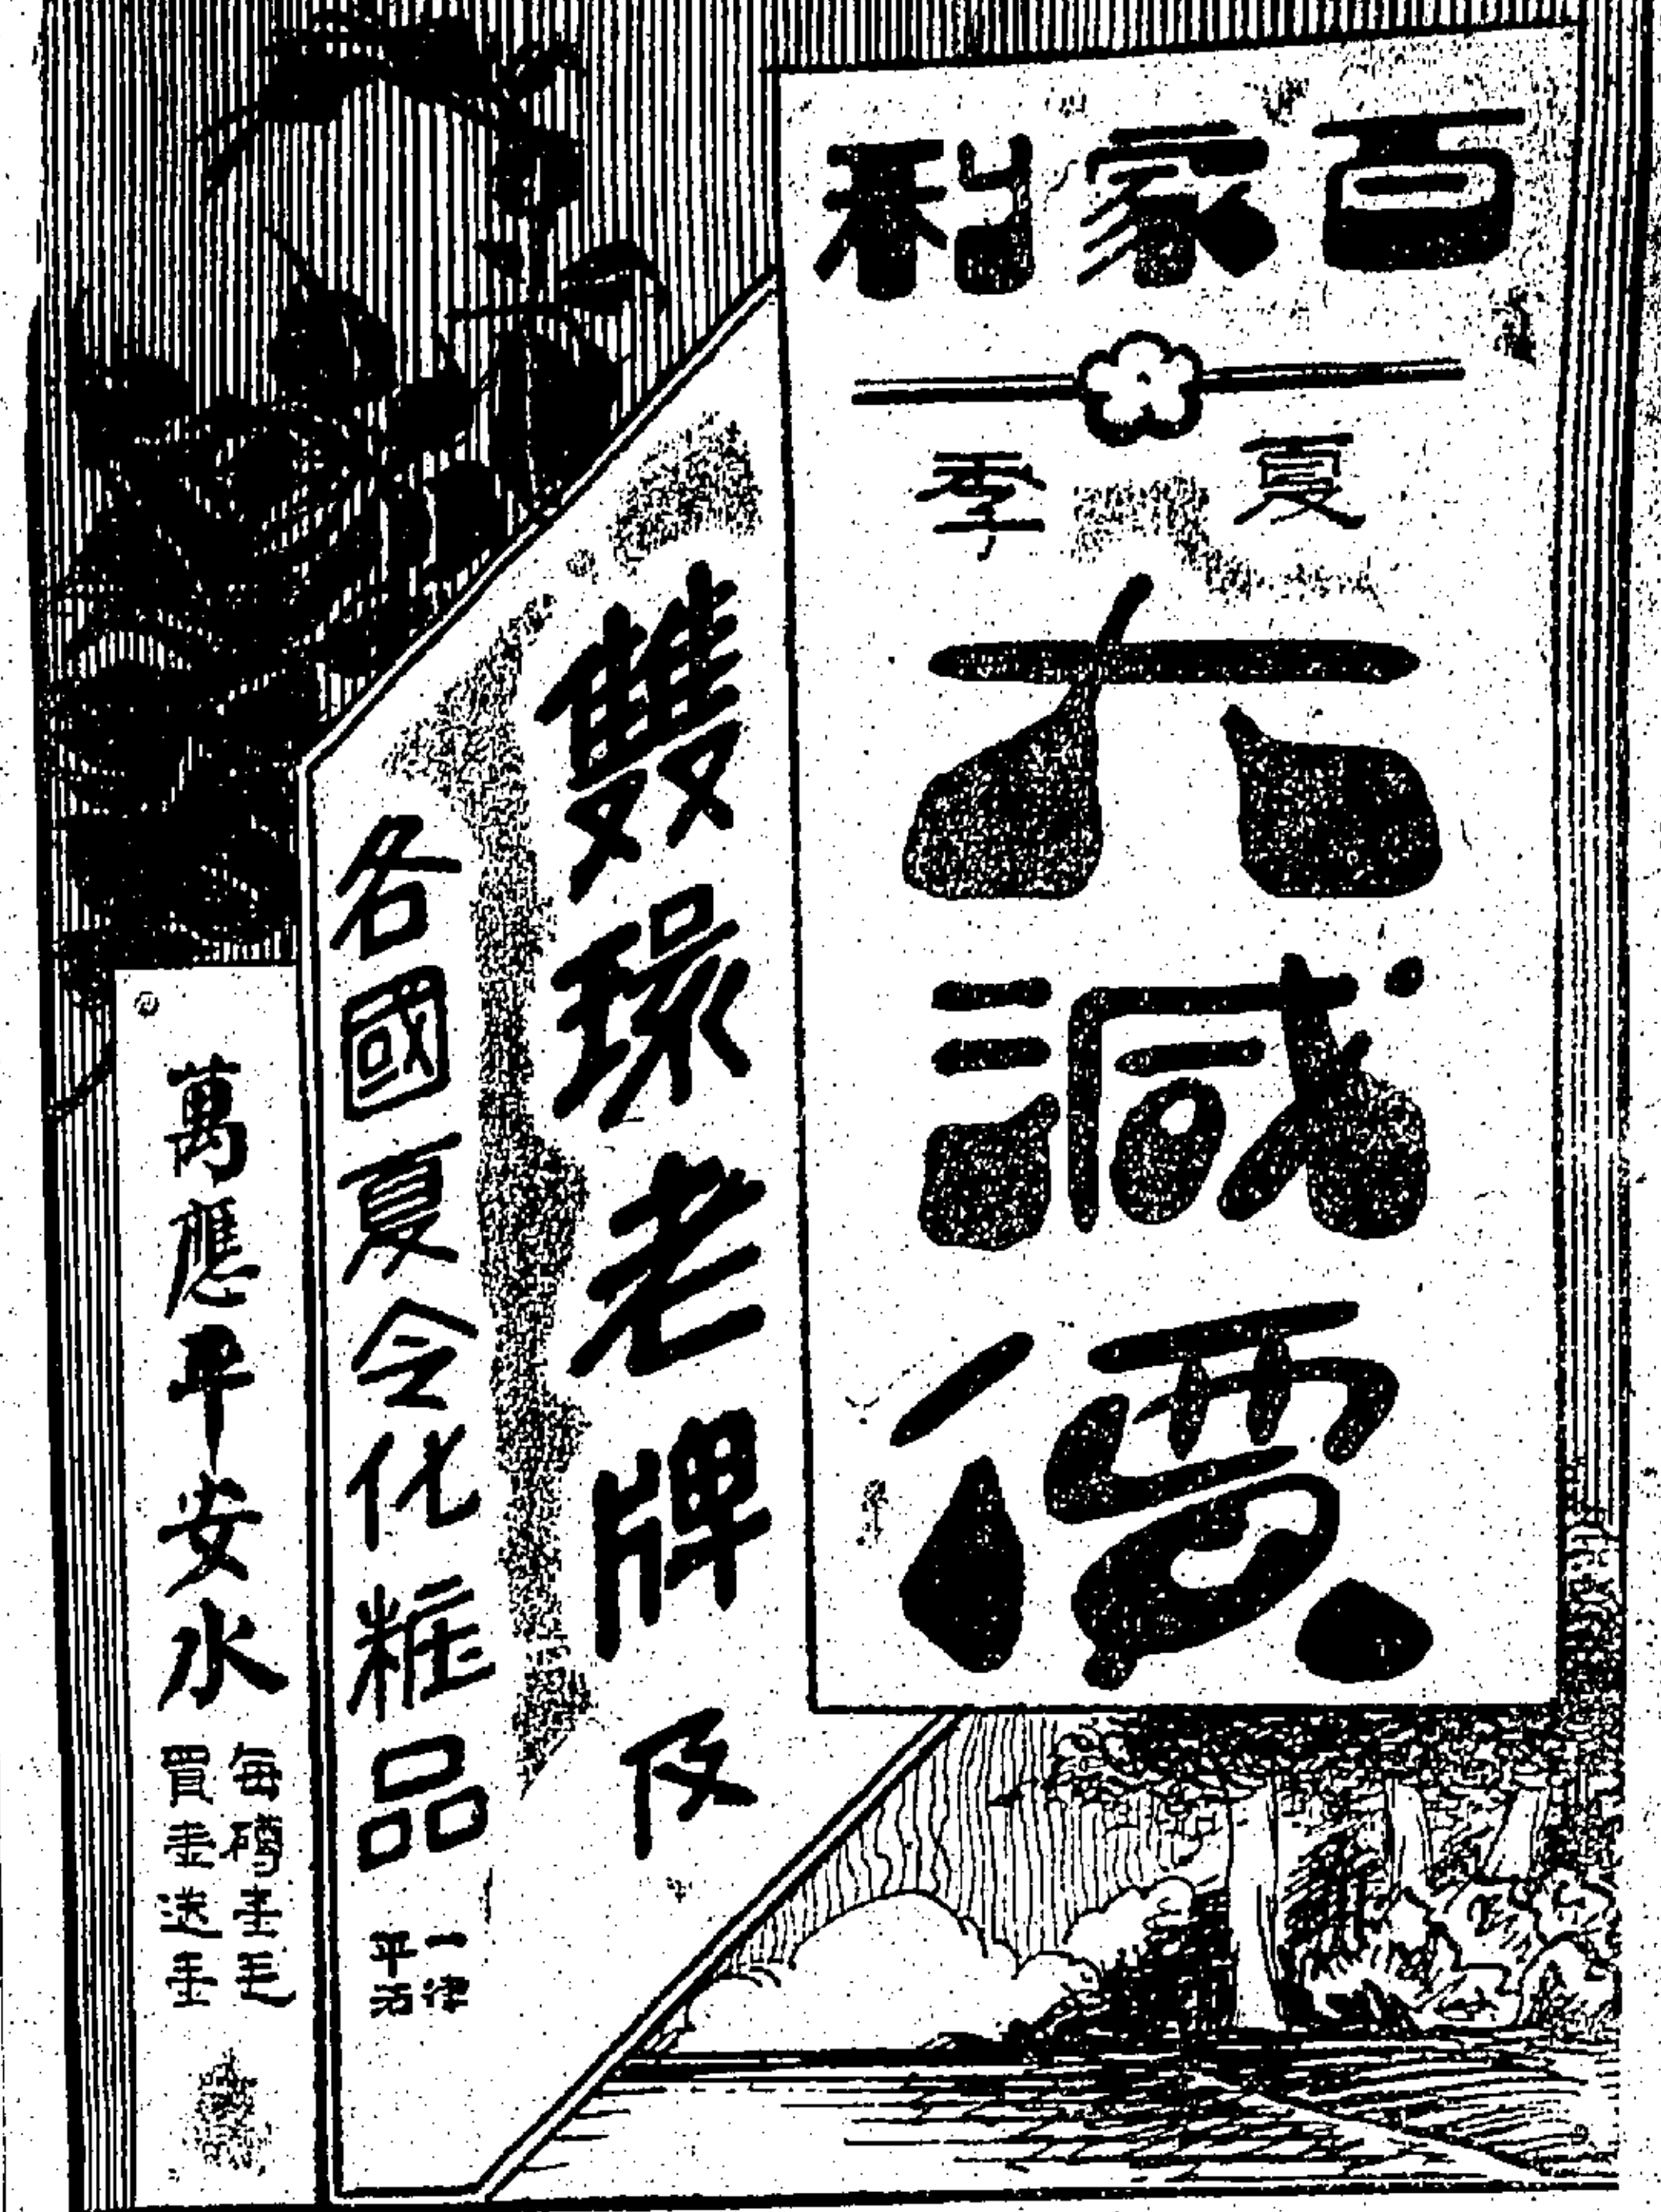 百家利
夏季
大減價
雙環老牌及
各國夏令化粧品
一律
平沽
萬應平安水
每壹毛
買壹送壹